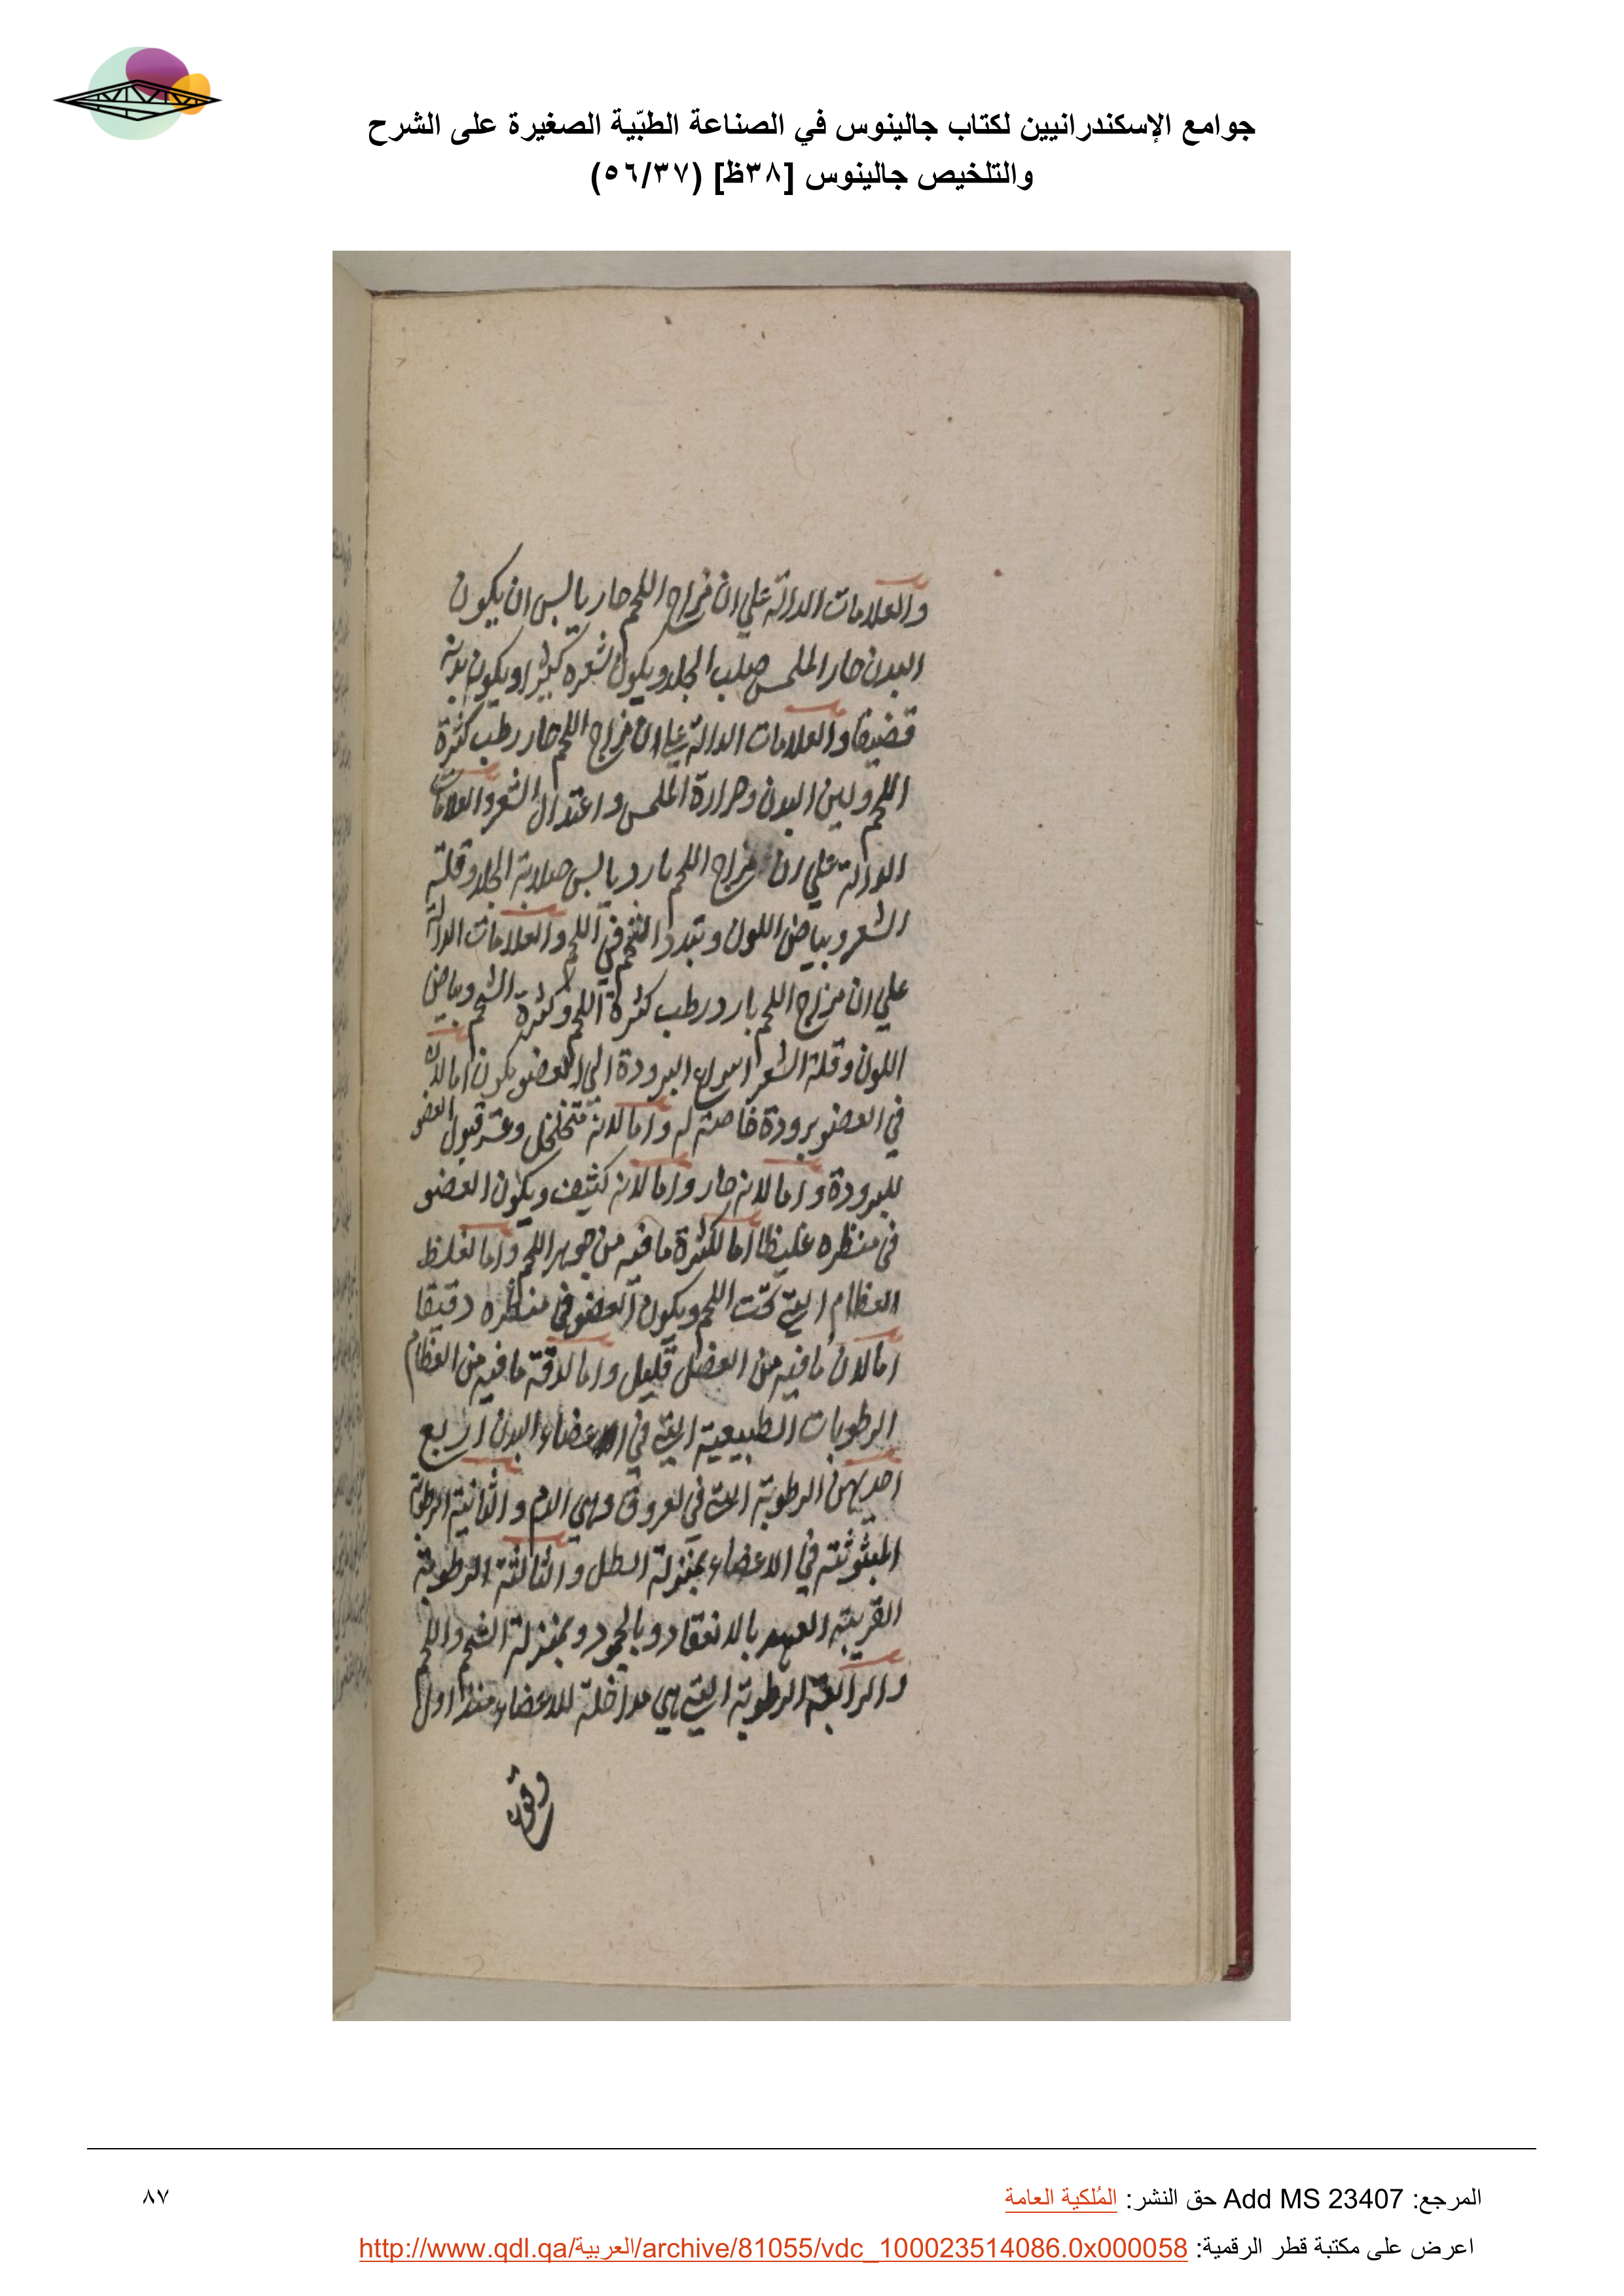 جوامع الإسكندرانيين لكتاب جالينوس في الصناعة الطبّية الصغيرة على الشرح
والتلخيص جالينوس [٣٨ظ] (٥٦/٣٧)
والعلامات الدالة علي ان مزاج اللحم حار يابس ان يكون
البدن حار الملمس صلب الجلد ويكون شعره كثيرا ويكون بدنه
قضيفا والعلامات الدالة علي ان مزاج اللحم حار رطب كثرة
اللحم ولين البدن وحرارة الملمس واعتدال الشعر والعلامات
الدالة علي ان مزاج اللحم بارد يابس صلابة الجلد وقلة
الشعر وبياض اللون وتبدد الشحم في اللحم والعلامات الدالة
علي ان مزاج اللحم بارد رطب كثرة اللحم وكثرة الشحم وبياض
اللون وقلة الشعر اسراع البرودة الي العضو يكون اما لان
في العضو برودة خاصة له واما لانه متخلخل وعسر قبول العضو
للبرودة واما لانه حار واما لانه كثيف ويكون العضو
في منظره غليظا اما لكثرة ما فيه من جوهر اللحم واما لغلظ
العظام التي تحت اللحم ويكون العضو في منظره دقيقا
اما لان ما فيه من العضل قليل واما لدقة ما فيه من العظام
الرطوبات الطبيعية التي في اعضاء البدن اربع
احديهن الرطوبة التي في لعروق وهي الدم والثانية الرطوبة
المبثوثة في الاعضاء بمنزلة الطل والثالثة الرطوبة
القريبة العهد بالانعقاد وبالجمود وبمنزلة الشحم واللحم
والرابعة الرطوبة التي هي مداخلة للاعضاء منذ اول
المرجع: Add MS 23407 حق النشر: المُلكية العامة
٨٧
اعرض على مكتبة قطر الرقمية: http://www.qdl.qa/العربية/archive/81055/vdc_100023514086.0x000058